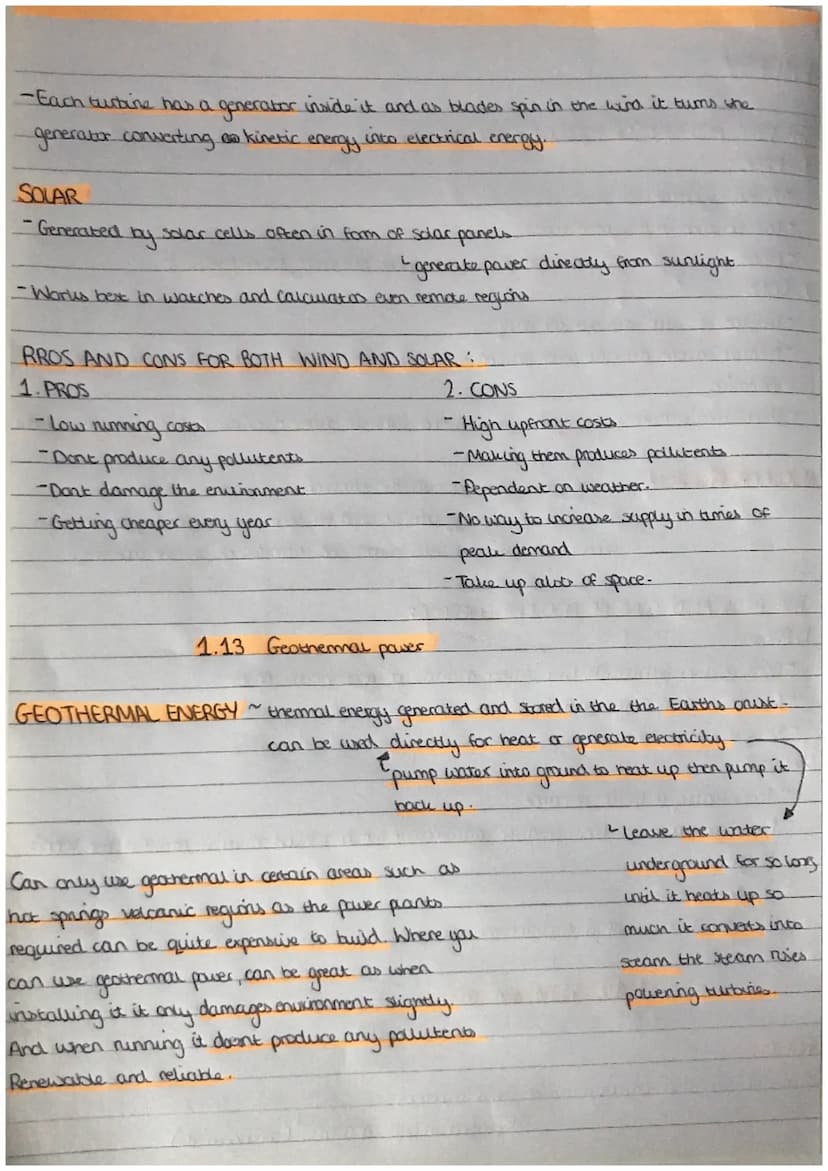 - Each turbine has a generator inside it and as blades spin in the wind it turns the
generator converting kinetic energy into electrical energy.
SOLAR
- Generated by solar cells often in form of solar panels
↳ generate power directly from sunlight
- Works best in watches and calculators even remote regions
PROS AND CONS FOR BOTH WIND AND SOLAR :
1. PROS
- Low running costs
- Dont produce any pollutents
- Dont damage the environment
- Getting cheaper every year
2. CONS
- High upfront costs
- Making them produces pollutents
- Dependent on weather.
- No way to increase supply in times of
peak demand
- Take up alot of space.
1.13 Geothermal power
GEOTHERMAL ENERGY ~ thermal energy generated and stored in the the Earths crust.
can be used directly for heat or generate electricity
pump water into ground to heat up then pump it
back up.
↳ leave the water
underground for so long
until it heats up so
much it converts into
steam the steam rises
powering turbines.
Can only use geothermal in certain areas such as
hot springs volcanic regions as the power plants
required can be quite expensive to build. Where you
can use geothermal power, can be great as when
installing it it only damages environment slightly.
And when running it doesnt produce any pollutents
Renewable and reliable.